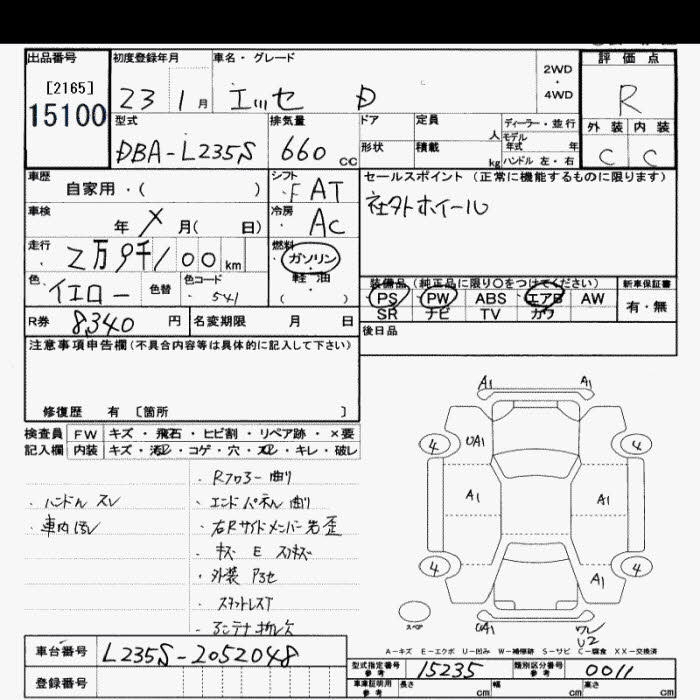 出品番号 初度登録年月 車名・グレード 評価点
[2165] 2WD
・
15100 23 1月 エッセ D 4WD R
型式 排気量 ドア 定員 ディーラー・並行 外装 内装
人 モデル年式 年
DBA-L235S 660 cc 形状 積載 kg ハンドル 左・右 C C
車歴 シフト セールスポイント(正常に機能するものに限ります)
自家用・( ) F AT 社外ホイール
車検 冷房
年 X 月( 日) AC
走行 燃料
2万9千100 km ガソリン
・
色 色替 色コード 軽油 装備品(純正品に限り○をつけてください) 新車保証書
イエロー 541 ( ) PS PW ABS エアB AW 有・無
SR ナビ TV カワ
R券 8,340 円 名変期限 月 日 後日品
注意事項申告欄(不具合内容等は具体的に記入して下さい)
修復歴 有 〔箇所 〕
検査員 FW キズ・飛石・ヒビ割・リペア跡・×要
記入欄 内装 キズ・汚レ・コゲ・穴・スレ・キレ・破レ
・ハンドル スレ
・車内汚レ
・Rフロアー曲り
・エンドパネル曲り
・右Rサイドメンバー先歪
・キズ E スリキズ
・外装 アセ
・スタットレスT
・アンテナ折欠
A1 A1
4 UA1 4
A1 A1
4 A1 4
スペア UA1 ワレ
U2
A-キズ E-エクボ U-凹み W-補修跡 S-サビ C-腐食 XX-交換済
車台番号 L235S-2052048
型式指定番号 参考 15235 類別区分番号 参考 0011
登録番号 車庫証明用 参考 長さ cm 幅 cm 高さ cm